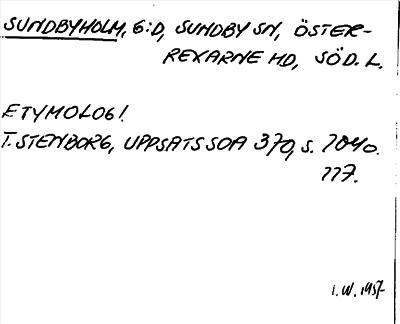 SUNDBYHOLM, G:D, SUNDBY SN, ÖSTER-
REKARNE HD, SÖD. L.
ETYMOLOGI.
T. STENBORG, UPPSATS SOA 370, S. 704 o.
117.
I.W. 1957